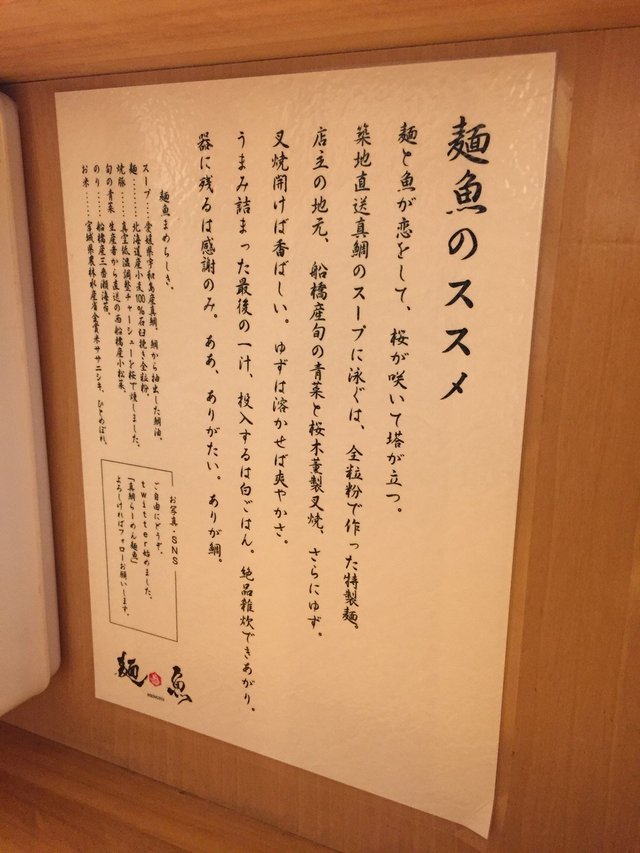 麺魚のススメ
麺と魚が恋をして、桜が咲いて塔が立つ。
築地直送真鯛のスープに泳ぐは、全粒粉で作った特製麺。
店主の地元、船橋産旬の青菜と桜木薫製叉焼、さらにゆず。
叉焼開けば香ばしい。ゆずは溶かせば爽やかさ。
うまみ詰まった最後の一汁、投入するは白ごはん。絶品雑炊できあがり。
器に残るは感謝のみ。ああ、ありがたい。ありが鯛。
麺魚まめちしき。
スープ……愛媛県宇和島産真鯛。鯛から抽出した鯛油。
麺………北海道産小麦100％石臼挽き全粒粉。
焼豚……真空低温調整チャーシューを桜で燻しました。
旬の青菜 生産者から直送の西船橋産小松菜。
のり……船橋産三番瀬海苔。
お米……宮城県農林水産省金賞米ササニシキ、ひとめぼれ。
お写真・SNS
ご自由にどうぞ。
twitter始めました。
「真鯛らーめん麺魚」
よろしければフォローお願いします。
麺魚